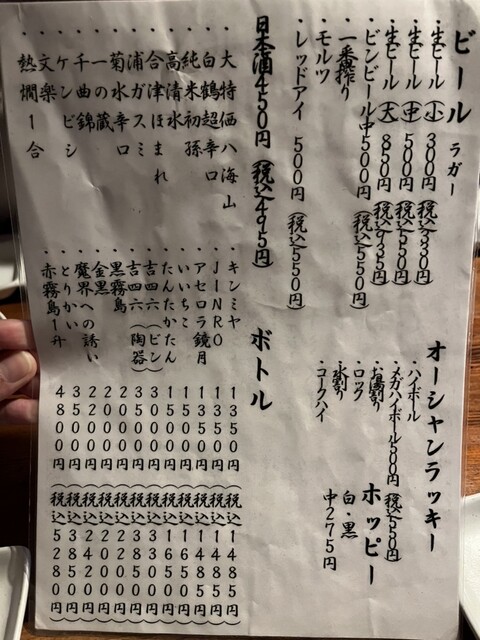 ビール ラガー
・生ビール(小) 300円(税込330円)
・生ビール(中) 500円(税込550円)
・生ビール(大) 850円(税込935円)
・ビンビール中500円(税込550円)
一番搾り
・モルツ
・レッドアイ 500円(税込550円)
オーシャンラッキー
・ハイボール
・メガハイボール500円(税込550円)
・お湯割り
・ロック
・水割り
・コークハイ
ホッピー
白・黒
中275円
日本酒450円(税込495円)
・大特価八海山
・白鶴超辛口
・純米初孫
・高清水
・合津ほまれ
・浦ガスミ
・菊水辛口
・一の蔵
・千曲錦
・ケンビシ
・文楽
・熱燗1合
ボトル
・キンミヤ 1350円(税込1485円)
・JINRO 1350円(税込1485円)
・アセロラ鏡月 1350円(税込1485円)
・いいちこ 1500円(税込1650円)
・たんたかたん 1500円(税込1650円)
・吉四六(ビン) 2800円(税込3080円)
・吉四六(陶器) 3500円(税込3850円)
・黒霧島 2000円(税込2200円)
・金黒 2000円(税込2200円)
・魔界への誘い 2200円(税込2420円)
・とりかい 3000円(税込3300円)
・赤霧島1升 4800円(税込5280円)